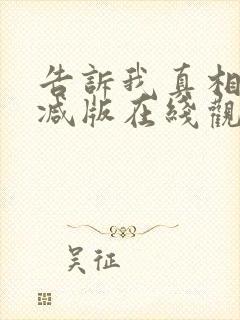 告訴我真相
减版在綫觀
吴征